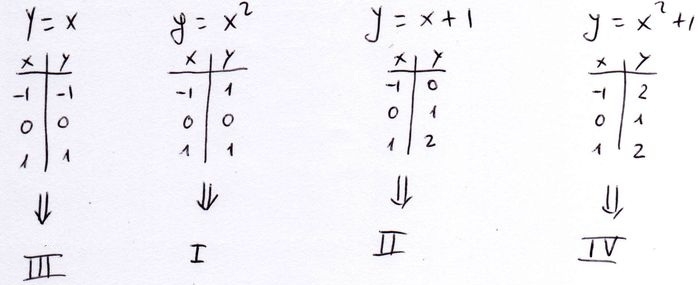 y = x y = x² y = x + 1 y = x² + 1
x y x y x y x y
-1 -1 -1 1 -1 0 -1 2
0 0 0 0 0 1 0 1
1 1 1 1 1 2 1 2
⇓ ⇓ ⇓ ⇓
III I II IV